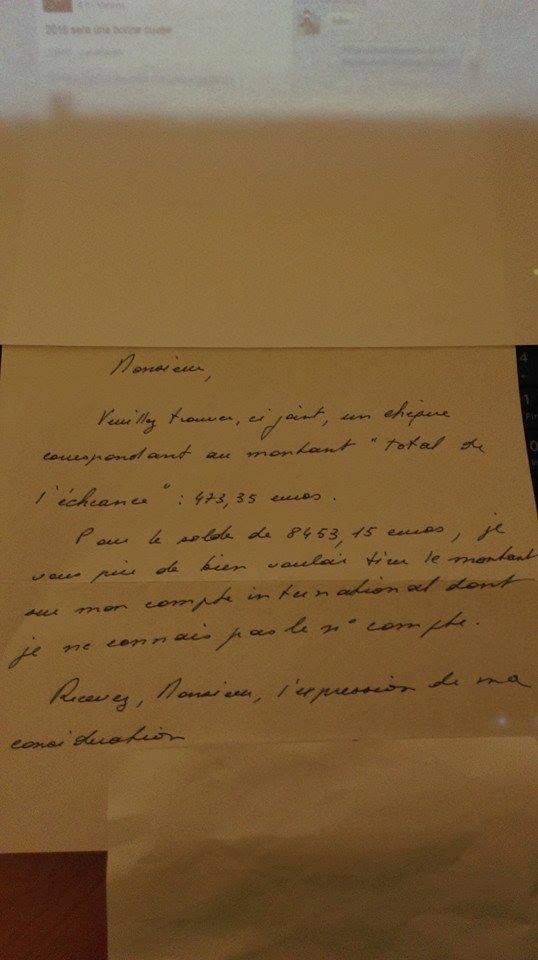 2016 sera une bonne cuvée
Monsieur,
Veuillez trouver, ci joint, un chèque
correspondant au montant "total de
l'échéance" : 473,35 euros.
Pour le solde de 8453,15 euros, je
vous prie de bien vouloir tirer le montant
sur mon compte international dont
je ne connais pas le n° compte.
Recevez, Monsieur, l'expression de ma
considération